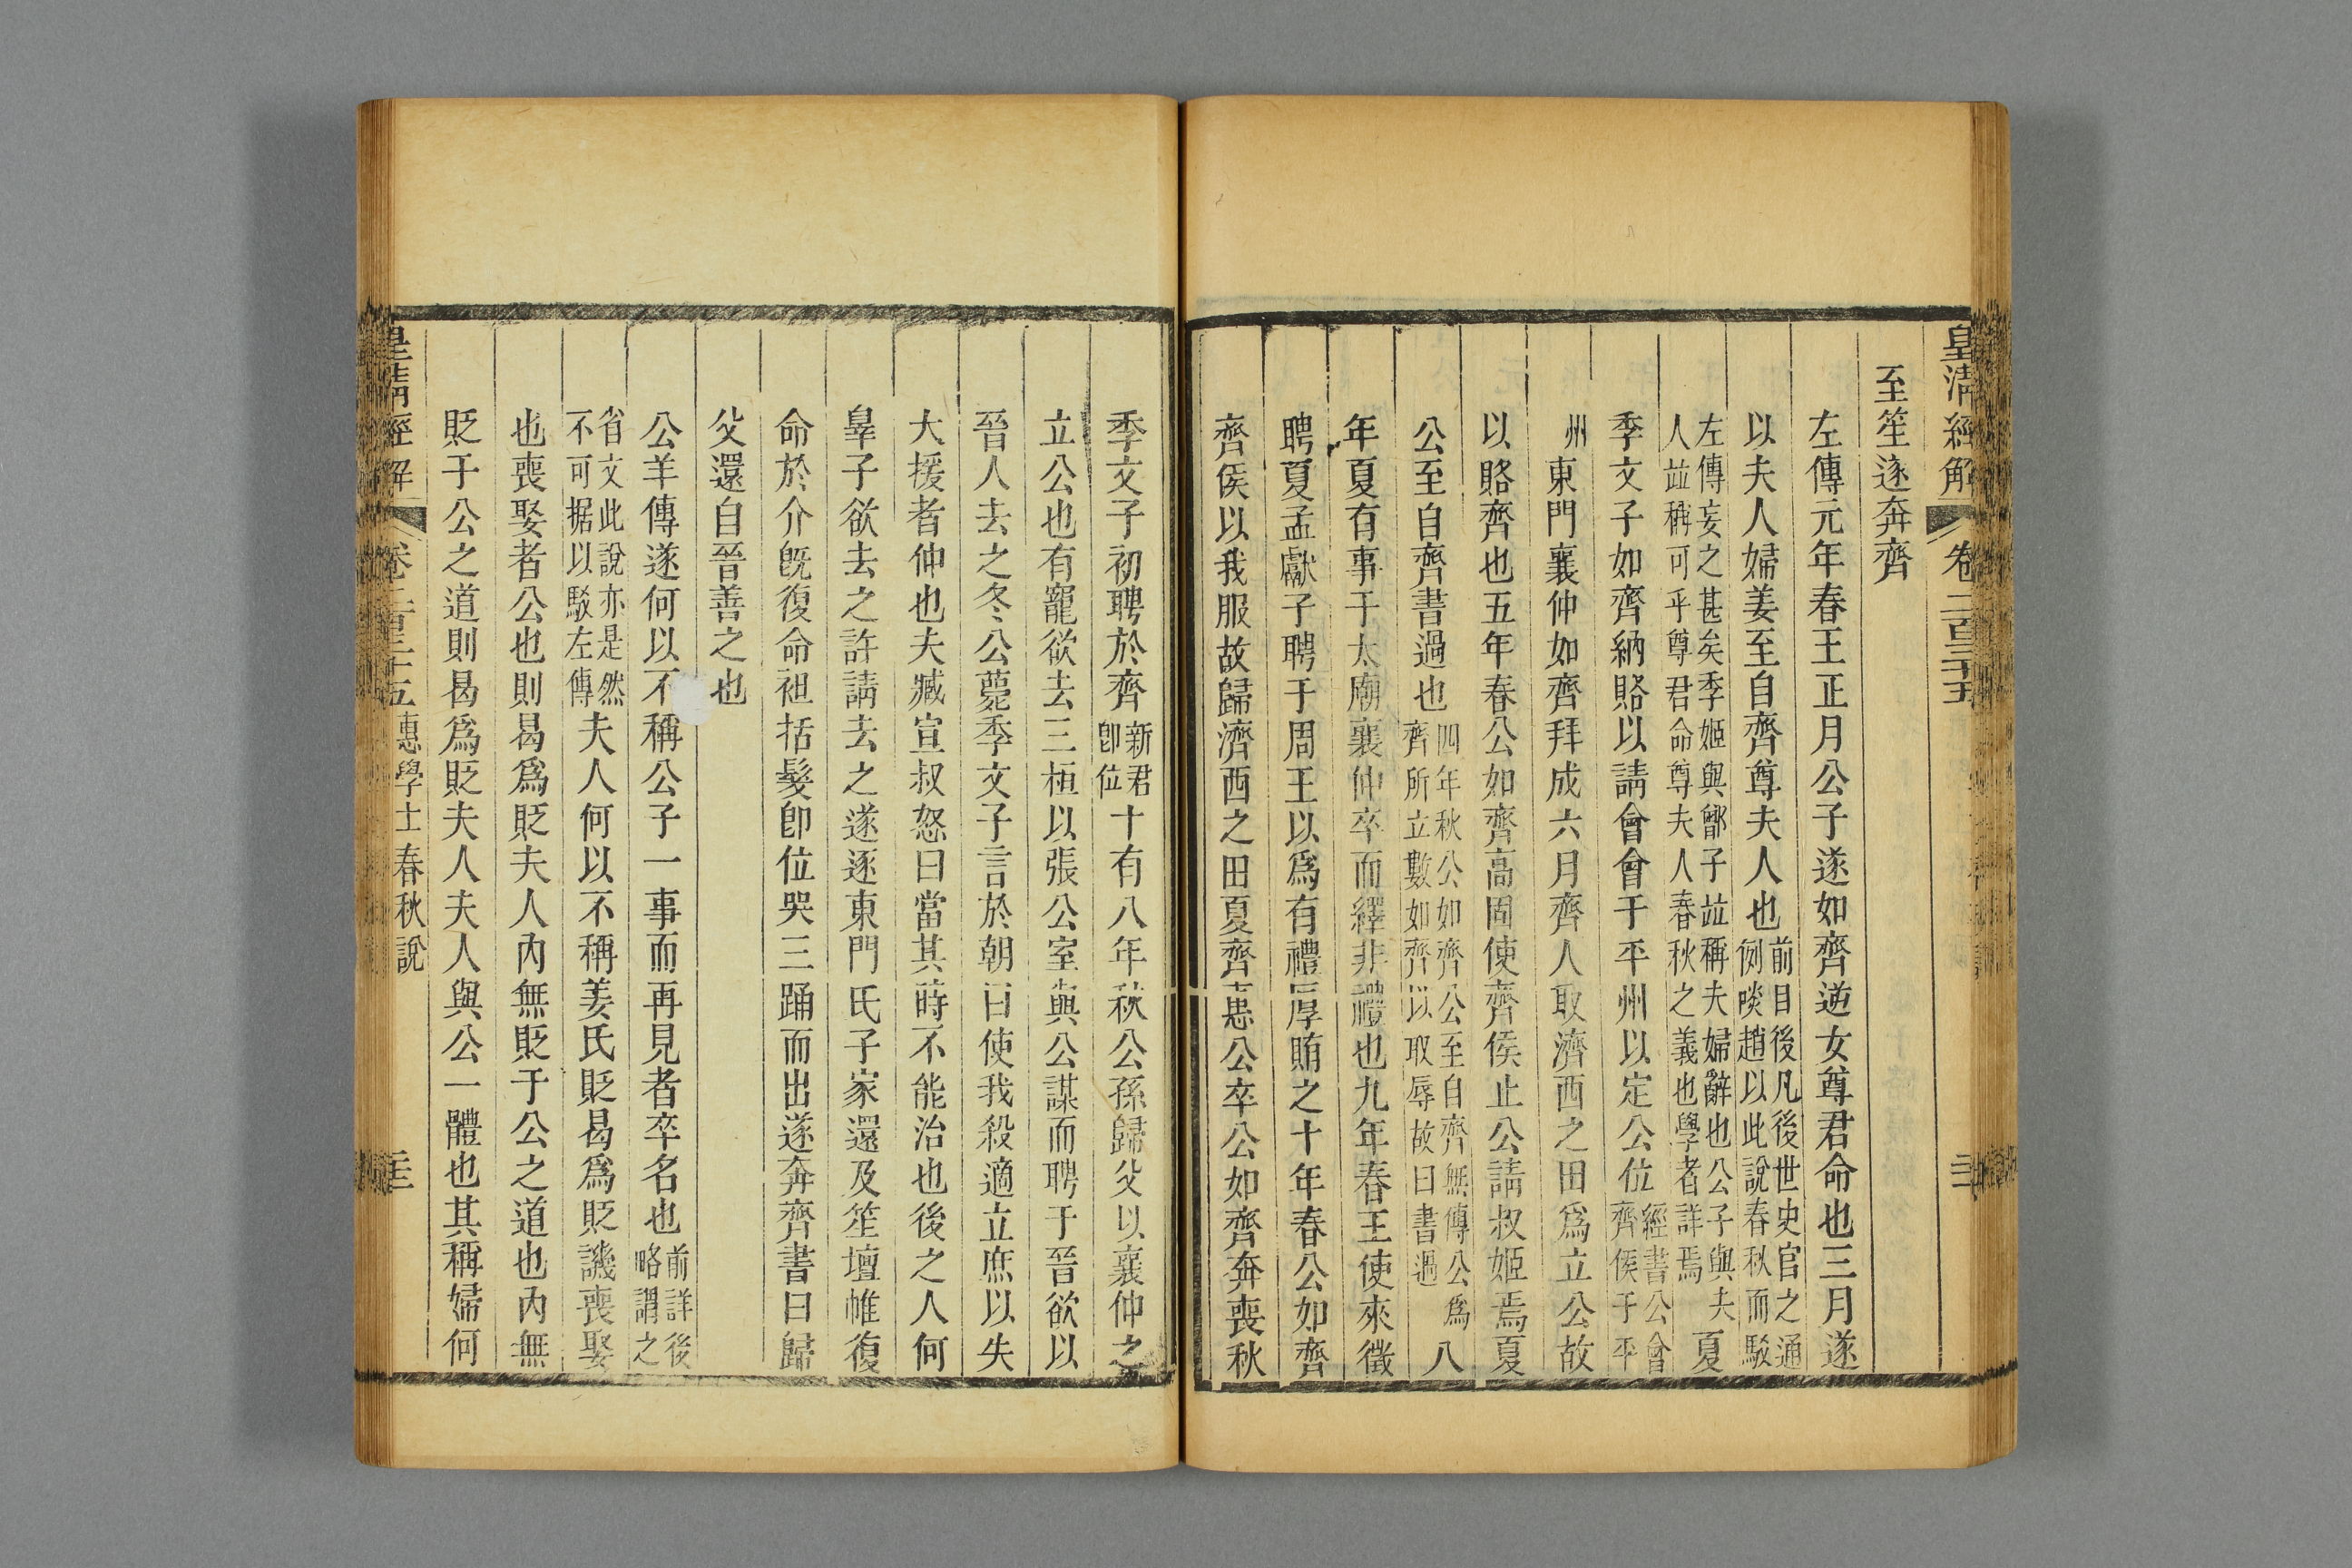 皇清經解 卷二百三十五
至笙遂奔齊
左傳元年春王正月公子遂如齊逆女尊君命也三月遂
以夫人婦姜至自齊尊夫人也前目後凡後世史官之通例啖趙以此說春秋而駁
左傳妄之甚矣季姬與鄫子竝稱夫婦辭也公子與夫人竝稱可乎尊君命尊夫人春秋之義也學者詳焉夏
季文子如齊納賂以請會會于平州以定公位經書公會齊侯于平
州東門襄仲如齊拜成六月齊人取濟西之田爲立公故
以賂齊也五年春公如齊高固使齊侯止公請叔姬焉夏
公至自齊書過也四年秋公如齊公至自齊無傳公爲齊所立數如齊以取辱故曰書過八
年夏有事于太廟襄仲卒而繹非禮也九年春王使來徵
聘夏孟獻子聘于周王以爲有禮厚賄之十年春公如齊
齊侯以我服故歸濟西之田夏齊惠公卒公如齊奔喪秋
季文子初聘於齊新君卽位十有八年秋公孫歸父以襄仲之
立公也有寵欲去三桓以張公室與公謀而聘于晉欲以
晉人去之冬公薨季文子言於朝曰使我殺適立庶以失
大援者仲也夫臧宣叔怒曰當其時不能治也後之人何
辠子欲去之許請去之遂逐東門氏子家還及笙壇帷復
命於介旣復命袒括髮卽位哭三踊而出遂奔齊書曰歸
父還自晉善之也
公羊傳遂何以不稱公子一事而再見者卒名也前詳後略謂之
省文此說亦是然不可据以駁左傳夫人何以不稱姜氏貶曷爲貶譏喪娶
也喪娶者公也則曷爲貶夫人內無貶于公之道也內無
貶于公之道則曷爲貶夫人夫人與公一體也其稱婦何
皇清經解 卷二百三十五 惠學士春秋說